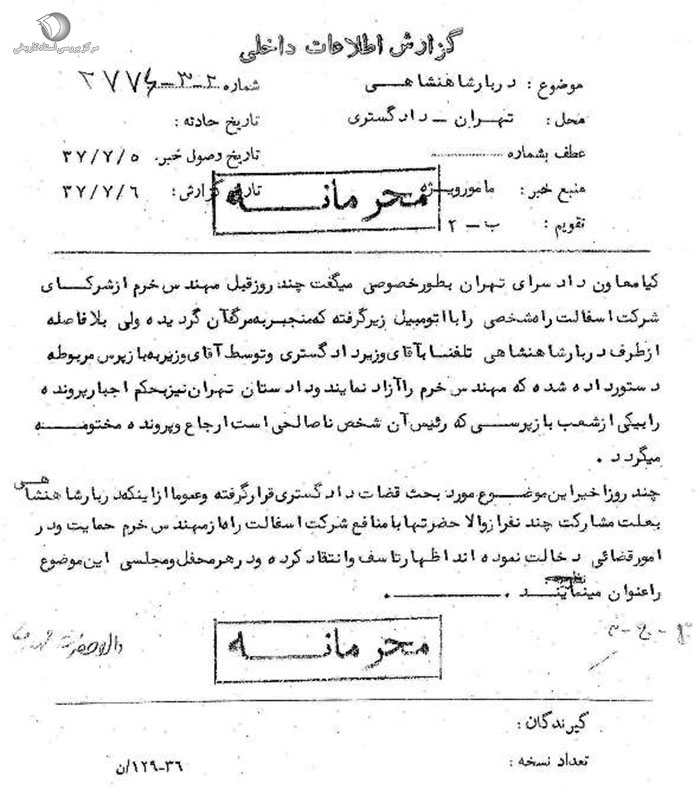 مرکز بررسی اسناد تاریخی
گزارش اطلاعات داخلی
موضوع : دربار شاهنشاهی
شماره ۲-۳-۲۷۷۴
محل : تهران – دادگستری
تاریخ حادثه :
عطف بشماره
تاریخ وصول خبر. ۳۷/۷/۵
منبع خبر : مامور ویژه
تاریخ گزارش : ۳۷/۷/۶
تقویم : ب – ۲
محرمانه
کیا معاون دادسرای تهران بطور خصوصی میگفت چند روز قبل مهندس خرم از شرکای
شرکت اسفالت راه شخصی را با اتومبیل زیر گرفته که منجر به مرگ آن گردیده ولی بلافاصله
از طرف دربار شاهنشاهی تلفنا با آقای وزیر دادگستری و توسط آقای وزیر به بازپرس مربوطه
دستور داده شده که مهندس خرم را آزاد نمایند و دادستان تهران نیز بحکم اجبار پرونده
را بیکی از شعب بازپرسی که رئیس آن شخص ناصالحی است ارجاع و پرونده مختومه
میگردد .
چند روز اخیر این موضوع مورد بحث قضات دادگستری قرار گرفته و عموما از اینکه دربار شاهنشاهی
بعلت مشارکت چند نفر از والاحضرتها با منافع شرکت اسفالت راه از مهندس خرم حمایت و در
امور قضائی دخالت نموده اند اظهار تاسف و انتقاد کرده و در هر محفل و مجلسی این موضوع
را عنوان مینمایند .
محرمانه
والاحضرت
گیرندگان :
تعداد نسخه :
۳۶-۱۲۹/ن